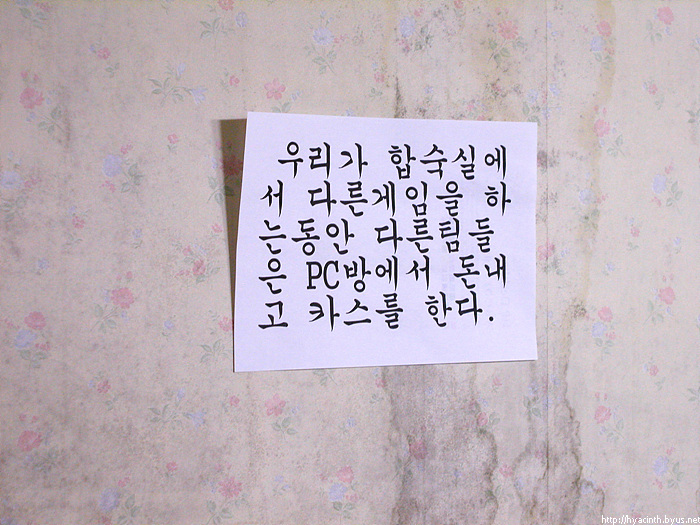 우리가 합숙실에
서 다른게임을 하
는동안 다른팀들
은 PC방에서 돈내
고 카스를 한다.
http://hyacinth.byus.net